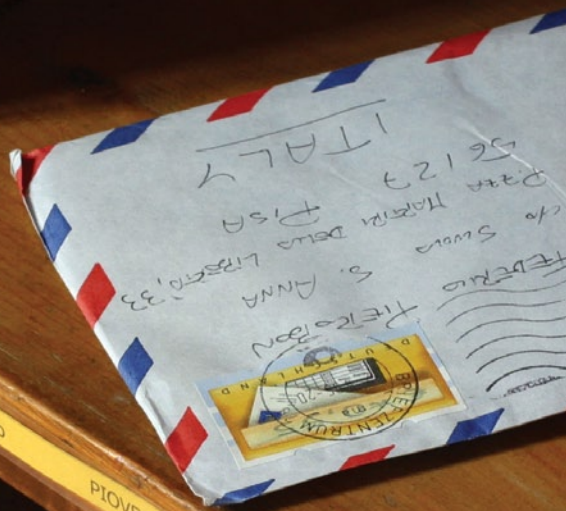 FEDERICO PIEROBON
c/o SCUOLA S. ANNA
P.ZZA MARTIRI DELLA LIBERTÀ, 33
56127 PISA
ITALY
DEUTSCHLAND
BRIEFZENTRUM
PIOVE